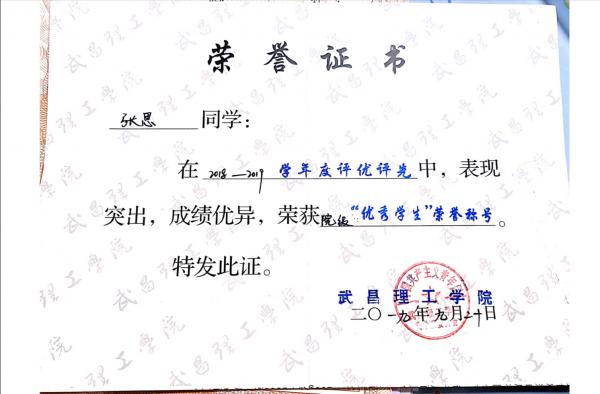 荣誉证书
张思 同学：
在 2018—2019 学年度评优评先 中，表现
突出，成绩优异，荣获 院级 “优秀学生”荣誉称号 。
特发此证。
武昌理工学院
二〇一九年九月二十日